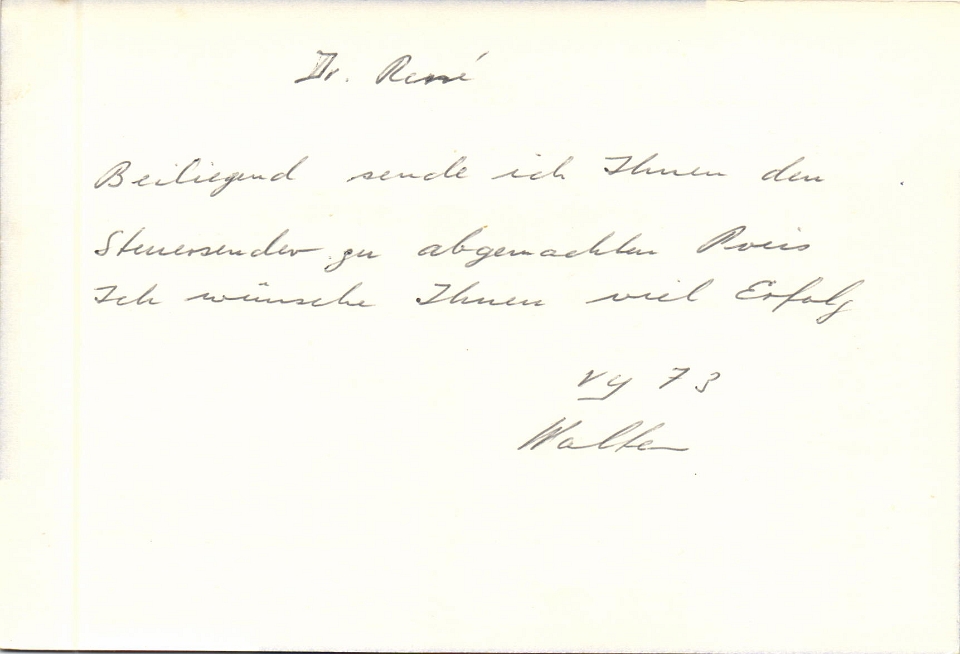 Dr. René
Beiliegend sende ich Ihnen den
Steuersender zu abgemachten Preis
Ich wünsche Ihnen viel Erfolg
vy 73
Walter